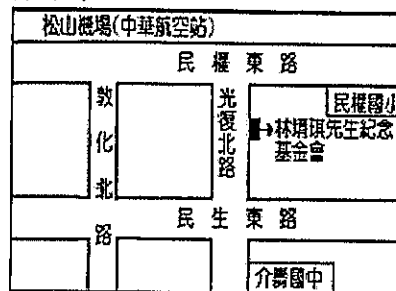 松山機場(中華航空站)
民權東路
敦化北路
光復北路
民權國小
林堉琪先生紀念
基金會
民生東路
介壽國中